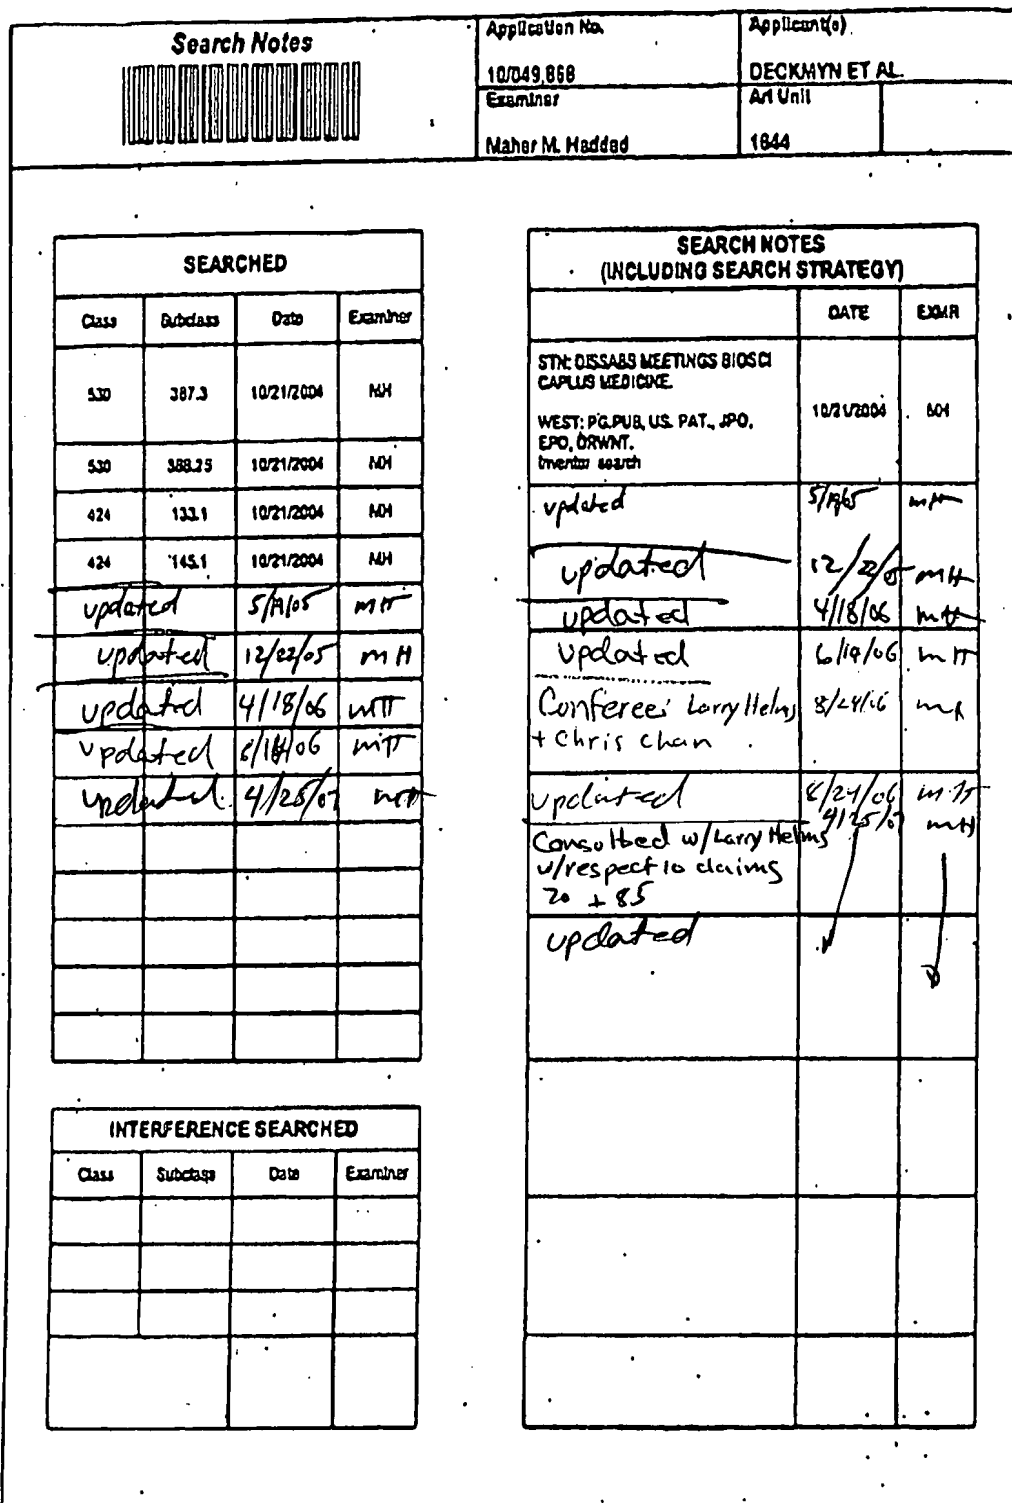 Search Notes
Application No.
Applicant(s)
10/049,868
DECKMYN ET AL.
Examiner
Art Unit
Maher M. Haddad
1644
SEARCHED
Class Subclass Date Examiner
530 387.3 10/21/2004 MH
530 388.25 10/21/2004 MH
424 133.1 10/21/2004 MH
424 145.1 10/21/2004 MH
updated 5/19/05 MH
updated 12/22/05 MH
updated 4/18/06 MH
updated MH
updated 4/25/07 MH
INTERFERENCE SEARCHED
Class Subclass Date Examiner
SEARCH NOTES
(INCLUDING SEARCH STRATEGY)
DATE EXMR
STN: DISSABS MEETINGS BIOSCI
CAPLUS MEDICINE.
WEST: PG.PUB, US. PAT., JPO,
EPO, DRWNT.
Inventor search
10/21/2004 MH
updated 5/19/05 MH
updated 12/22/05 MH
updated 4/18/06 MH
updated 6/19/06 MH
Conferee: Larry Helms 8/24/06 MH
+ Chris Chan
updated 8/24/06 MH
4/25/07 MH
Consulted w/Larry Helms
w/respect to claims
20 + 85
updated